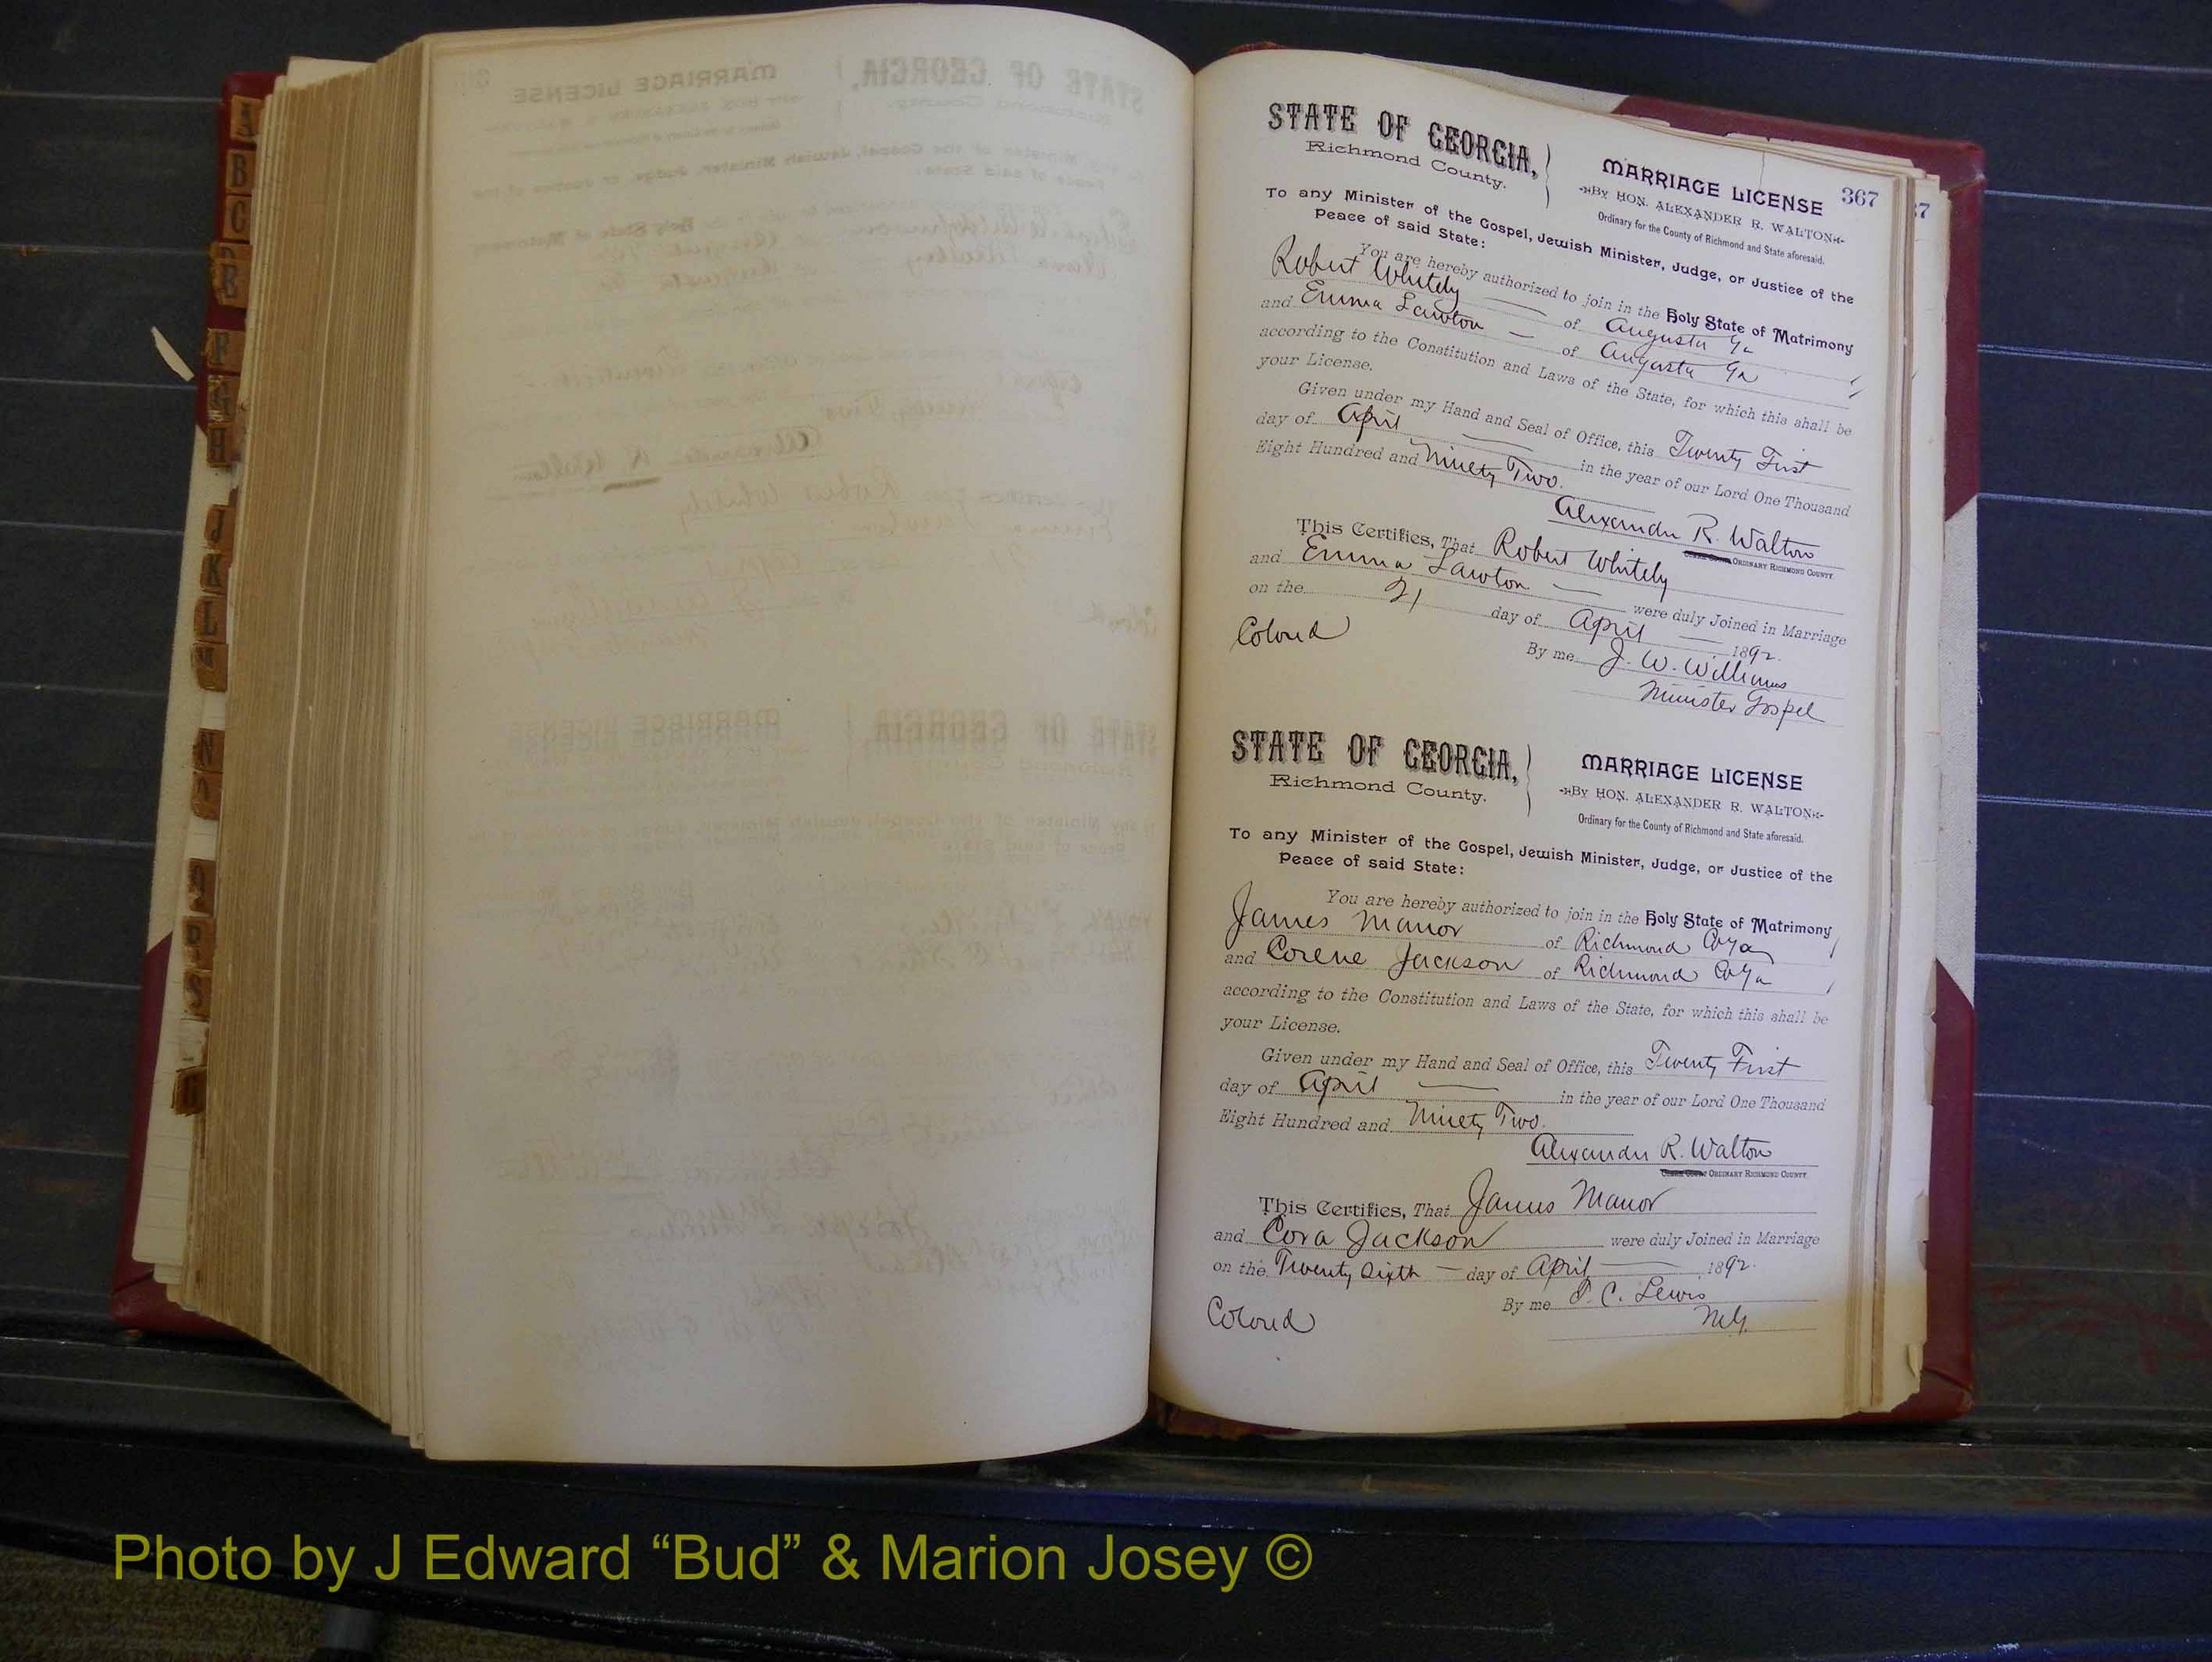 A
B
C
F
G
H
J
K
L
N
S
STATE OF GEORGIA,
Richmond County.
MARRIAGE LICENSE
BY HON. ALEXANDER R. WALTON
Ordinary for the County of Richmond and State aforesaid.
367
37
To any Minister of the Gospel, Jewish Minister, Judge, or Justice of the
Peace of said State:
You are hereby authorized to join in the Holy State of Matrimony
Robert Whitely of Augusta Ga
and Emma Lawton of Augusta Ga
according to the Constitution and Laws of the State, for which this shall be
your License.
Given under my Hand and Seal of Office, this Twenty First
day of April in the year of our Lord One Thousand
Eight Hundred and Ninety Two.
Alexander R. Walton
ORDINARY RICHMOND COUNTY.
This Certifies, That Robert Whitely
and Emma Lawton were duly Joined in Marriage
on the 21 day of April 1892.
By me J. W. Williams
Colored
Minister Gospel
STATE OF GEORGIA,
Richmond County.
MARRIAGE LICENSE
BY HON. ALEXANDER R. WALTON
Ordinary for the County of Richmond and State aforesaid.
To any Minister of the Gospel, Jewish Minister, Judge, or Justice of the
Peace of said State:
You are hereby authorized to join in the Holy State of Matrimony
James Manor of Richmond Co Ga
and Corene Jackson of Richmond Co Ga
according to the Constitution and Laws of the State, for which this shall be
your License.
Given under my Hand and Seal of Office, this Twenty First
day of April in the year of our Lord One Thousand
Eight Hundred and Ninety Two.
Alexander R. Walton
ORDINARY RICHMOND COUNTY.
This Certifies, That James Manor
and Cora Jackson were duly Joined in Marriage
on the Twenty Sixth day of April 1892.
By me C. Lewis
Colored
M.G.
Photo by J Edward “Bud” & Marion Josey ©